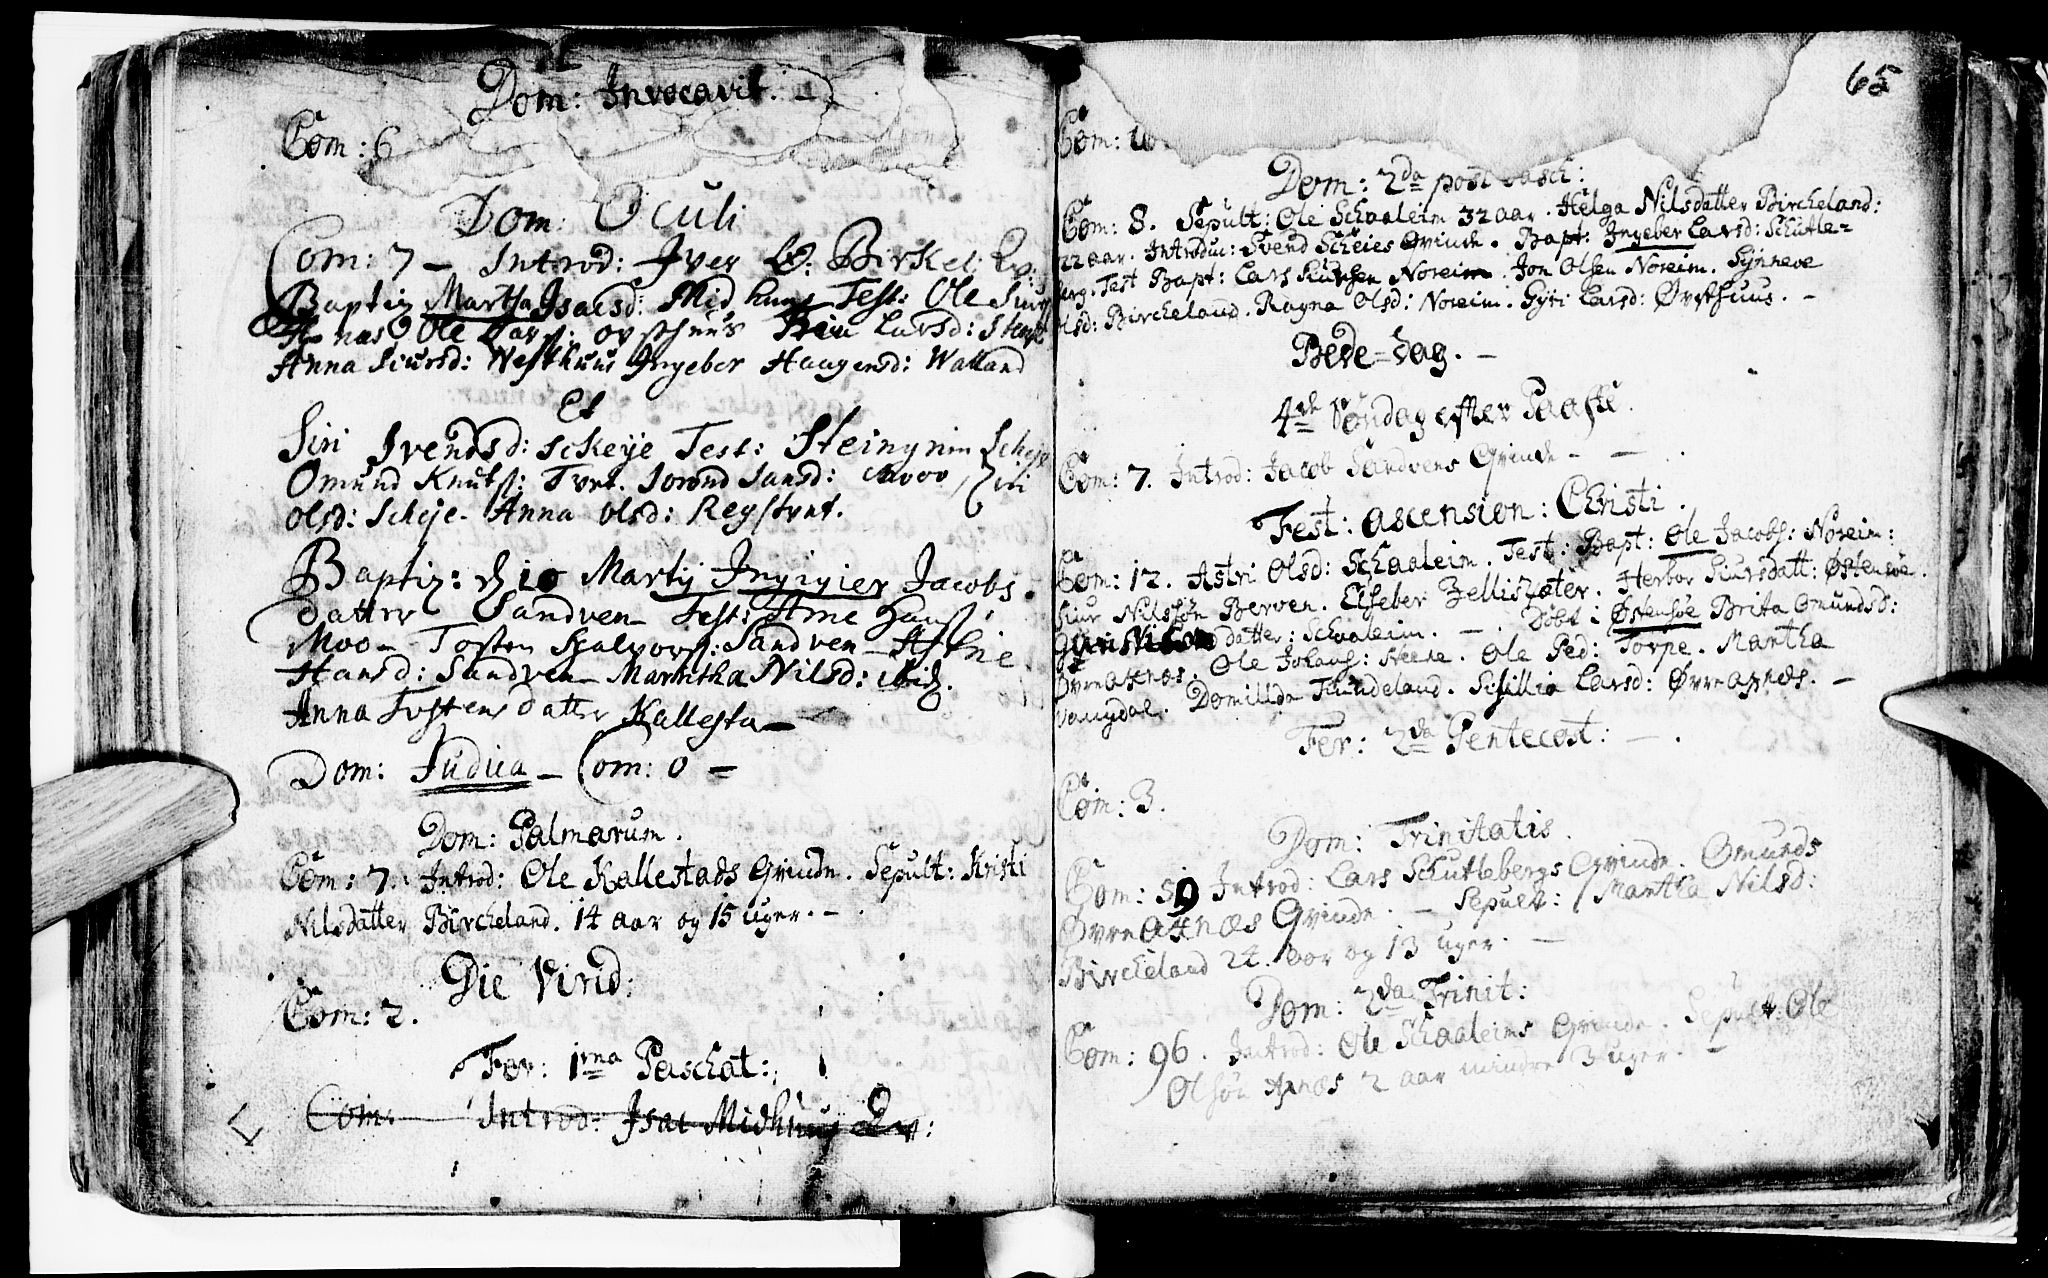 Dom: Invocavit.
Com: 6
Dom: Oculi
Com: 7 – Introd: Iver Birkel:
Baptiz Martha Isacsd: Midhuus Test: Ole Siurs
Ole Lars: ovsthuus Larsd:
Anna Siursd: Westhuus Ingebor Haagensd: Walland
Et
Siri Svendsd: Scheije Test: Steingrim Scheje
Omund Knuts: Tvet. Jorond Jansd: Mooe, Siri
Olsd: Scheje. Anna Olsd: Reystvet.
Baptiz: d 10 Martij Ingigier Jacobs
datter Sandven Test: Arne Hans:
Moo – Tosten Hjalvors: Sandven –
Hansd: Sandven Marritha Nilsd: ibid.
Anna Tostensdatter Kallesta –
Dom: Judica – Com: 0 –
Dom: Palmarum.
Com: 7. Introd: Ole Kallestads Qvinde. Sepult: Kristi
Nilsdatter Bircheland. 14 aar og 15 uger. –
Die Virid:
Com: 2.
Fer: 1ma Paschat:
Com: Introd: Isac Midhuus Qv:
65
Com:
Dom: 2da post Pasch:
Com: 8. Sepult: Ole Schaaleim 32 aar. Helga Nilsdatter Bircheland:
22 aar. Introduc: Svend Scheies Qvinde. Bapt: Ingeber Larsd: Schutle=
berg. Test Bapt: Lars Knutsen Noreim. Jon Olsen Noreim. Synneve
Olsd: Bircheland. Ragna Olsd: Noreim. Gyri Larsd: Øvsthuus. –
Bede=dag. –
4de Søndag efter Paaske.
Com: 7. Introd: Jacob Sandvens Qvinde – –
Fest: ascension: Christi.
Com: 12. Astri Olsd: Schaaleim. Test: Bapt: Ole Jacobs: Noreim:
Siur Nilssøn Berven. Elseber Zellisæter. Herbor Siursdatt: Østensøe.
datter: Schaaleim. – Døbt i Østensøe Brita Omundsd:
Øvre Axnæs. Ole Johans: Neene. Ole Ped: Torpe. Martha
Vangdal. Domillda Tundeland. Sisillia Larsd: Øvre Axnæs. –
Fer: 2da Pentecost: –
Com: 3.
Dom: Trinitatis.
Com: 59 Introd: Lars Schutlebergs Qvinde. Omunds
Øvre Axnæs Qvinde. – Sepult: Martha Nilsd:
Bircheland 24. aar og 13 uger. –
Dom: 2da Trinit:
Com: 96. Introd: Ole Schaaleims Qvinde. Sepult. Ole
Olsøn Axnæs 2 aar mindre 3 uger. –